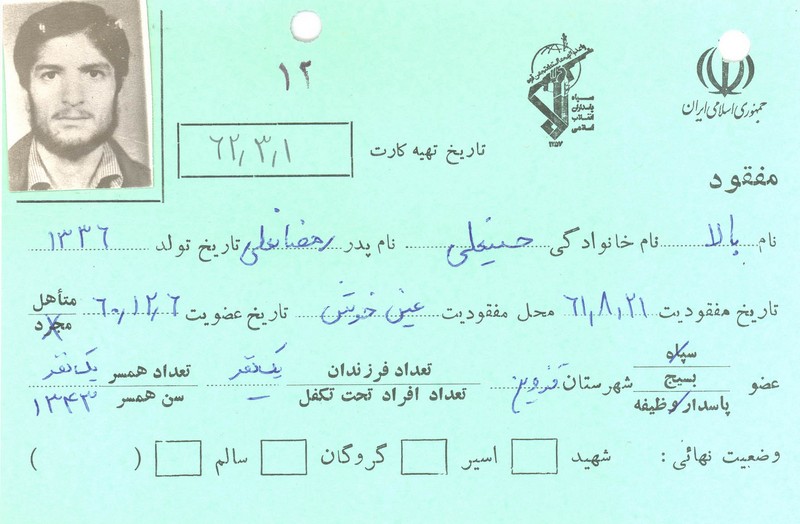 جمهوری اسلامی ایران
سپاه پاسداران انقلاب اسلامی
۱۳۵۷
۱۲
تاریخ تهیه کارت ۶۲٫۳٫۱
مفقود
نام بالا نام خانوادگی حسینعلی نام پدر رمضانعلی تاریخ تولد ۱۳۳۶
تاریخ مفقودیت ۶۱٫۸٫۲۱ محل مفقودیت عین خوش تاریخ عضویت ۶۰٫۱۲٫۶ متأهل مجرد
عضو سپاه بسیج پاسدار وظیفه شهرستان قزوین تعداد فرزندان یک نفر تعداد همسر یک نفر
تعداد افراد تحت تکفل – سن همسر ۱۳۴۳
وضعیت نهائی : شهید اسیر گروگان سالم ( )